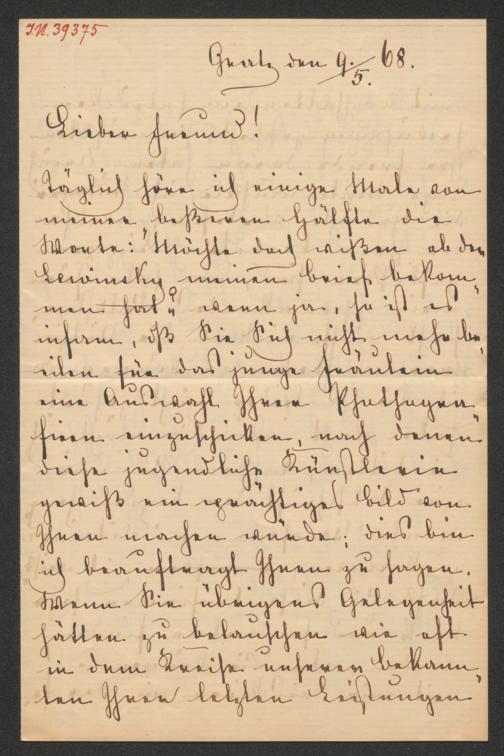 I.N. 39375
Gratz den 9./5. 68.
Lieber Freund!
Täglich höre ich einige Male von
meiner beßeren Hälfte die
Worte: "Möchte doch wißen ob der
Lewinsky meinen Brief bekom„
men hat"? wenn ja, so ist es
infam, dß Sie Sich nicht mehr be„
eilen für das junge Fräulein
eine Auswahl Ihrer Photogra„
fieen einzuschicken, nach denen
diese jugendliche Künstlerin
gewiß ein prächtiges Bild von
Ihnen machen würde; dies bin
ich beauftragt Ihnen zu sagen.
Wenn Sie übrigens Gelegenheit
hätten zu belauschen wie oft
in dem Kreise unserer Bekann„
ten Ihrer letzten Leistungen